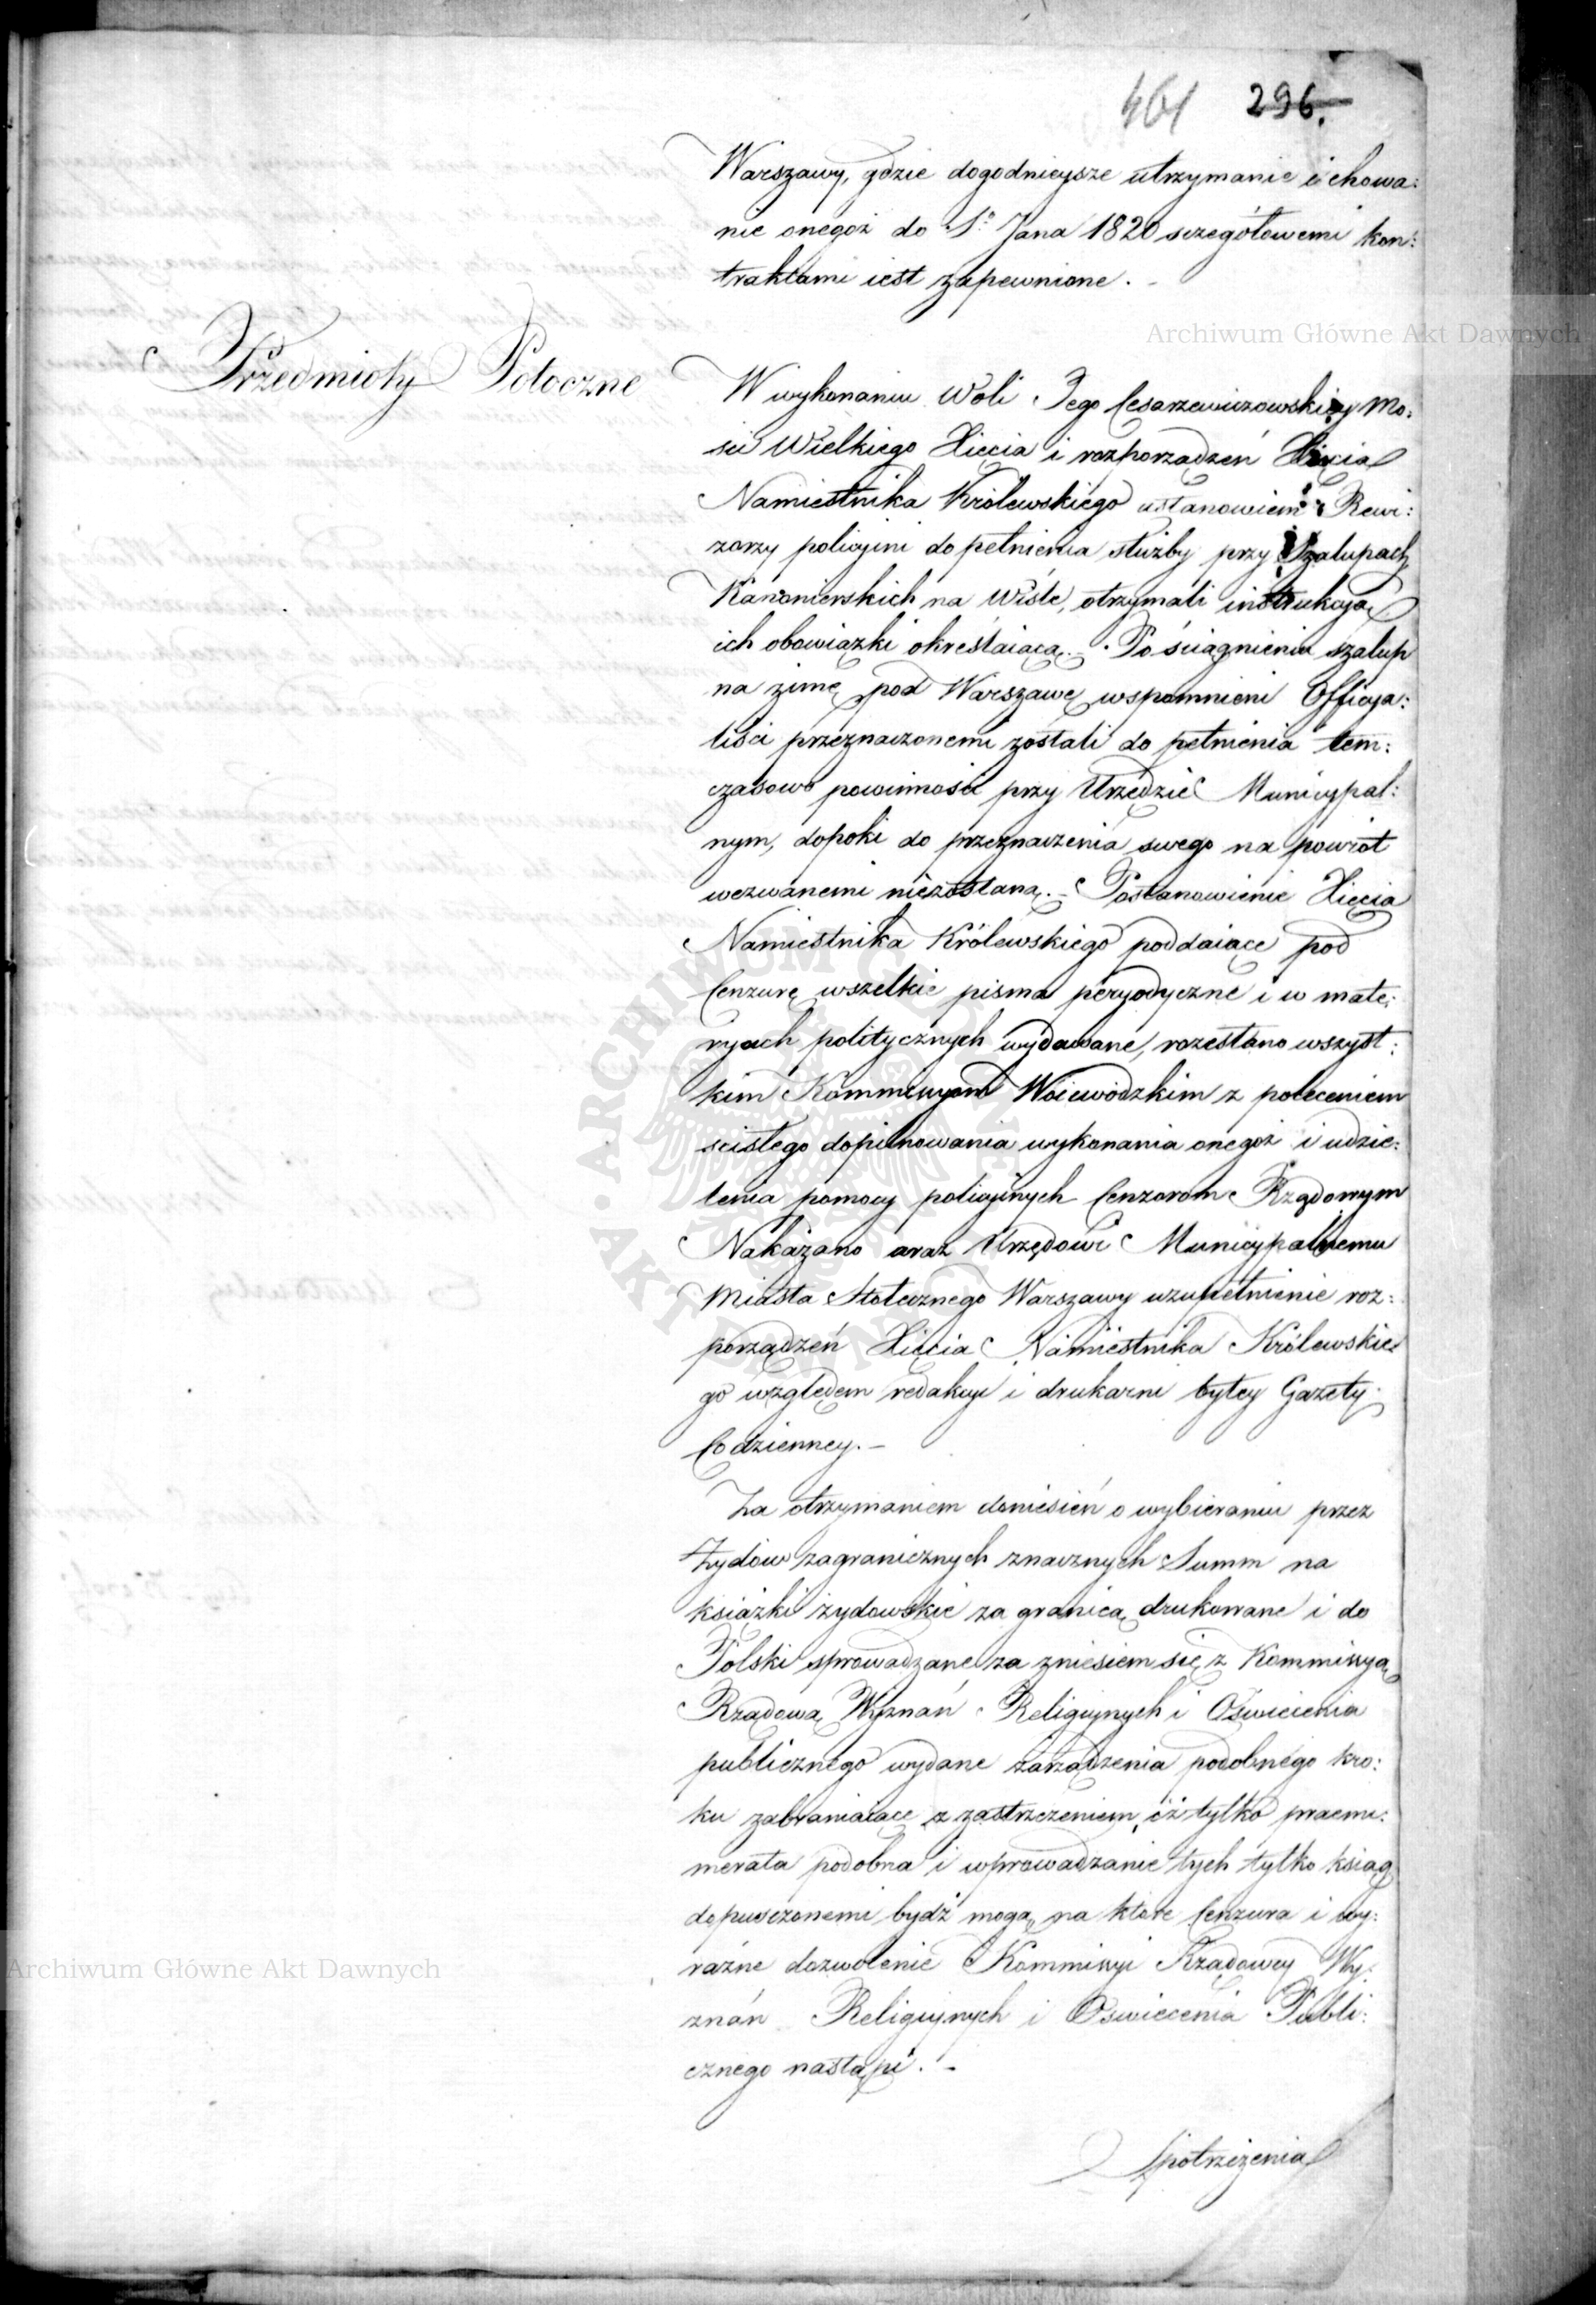 461 296.
Warszawy, gdzie dogodnieysze utrzymanie i chowa:
nie onegoż do S.º Jana 1820 sczegółowemi kon:
traktami iest zapewnione. -
Archiwum Główne Akt Dawnych
Przedmioty Potoczne
W wykonaniu Woli Jego Cesarzewiczowskiey Mo:
ści Wielkiego Xięcia i rozporządzeń Xięcia
Namiestnika Królewskiego ustanowieni Rewi:
zorzy policyini do pełnienia służby przy Szalupach
Kanonierskich na Wiśle, otrzymali instrukcyą
ich obowiązki określaiącą. - Po ściągnieniu szalup
na zimę pod Warszawę wspomnieni Officya:
liści przeznaczonemi zostali do pełnienia tem:
czasowo powinności przy Urzędzie Municypal:
nym, dopoki do przeznaczenia swego na powrót
wezwanemi niezostaną. - Postanowienie Xięcia
Namiestnika Królewskiego poddaiące pod
Cenzurę wszelkie pisma peryodyczne i w mate:
ryach politycznych wydawane, rozesłano wszyst:
kim Kommissyom Woiewódzkim z poleceniem
scisłego dopilnowania wykonania onegoż i udzie:
lenia pomocy policyinych Cenzorom Rządowym
Nakazano oraz Urzędowi Municypalnemu
Miasta Stołecznego Warszawy uzupełnienie roz:
porządzeń Xięcia Namiestnika Królewskie
go względem redakcyi i drukarni byłey Gazety
Codzienney. -
Za otrzymaniem doniesień o wybieraniu przez
Żydów zagranicznych znacznych Summ na
książki żydowskie za granicą drukowane i do
Polski sprowadzane za zniesiem się z Kommissyą
Rządową Wyznań Religiynych i Oświecenia
publicznego wydane zarządzenia podobnego kro:
ku zabraniaiące z zastrzeżeniem, iż tylko praenu:
merata podobna i wprowadzanie tych tylko ksiąg
dopusczonemi bydź mogą, na które Cenzura i wy:
raźne dozwolenie Kommissyi Rządowey Wy:
znań Religiynych i Oświecenia Publi:
cznego nastąpi. -
Archiwum Główne Akt Dawnych
Spotrzeżenia
ARCHIWUM GŁÓWNE AKT DAWNYCH